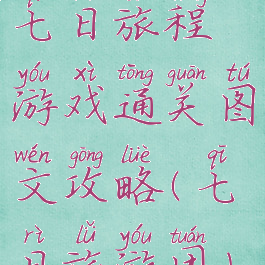 七日旅程
yóu xì tōng guān tú
游戏通关图
wén gōng lüè qī
文攻略(七
rì lǚ yóu tuán
日旅游团)